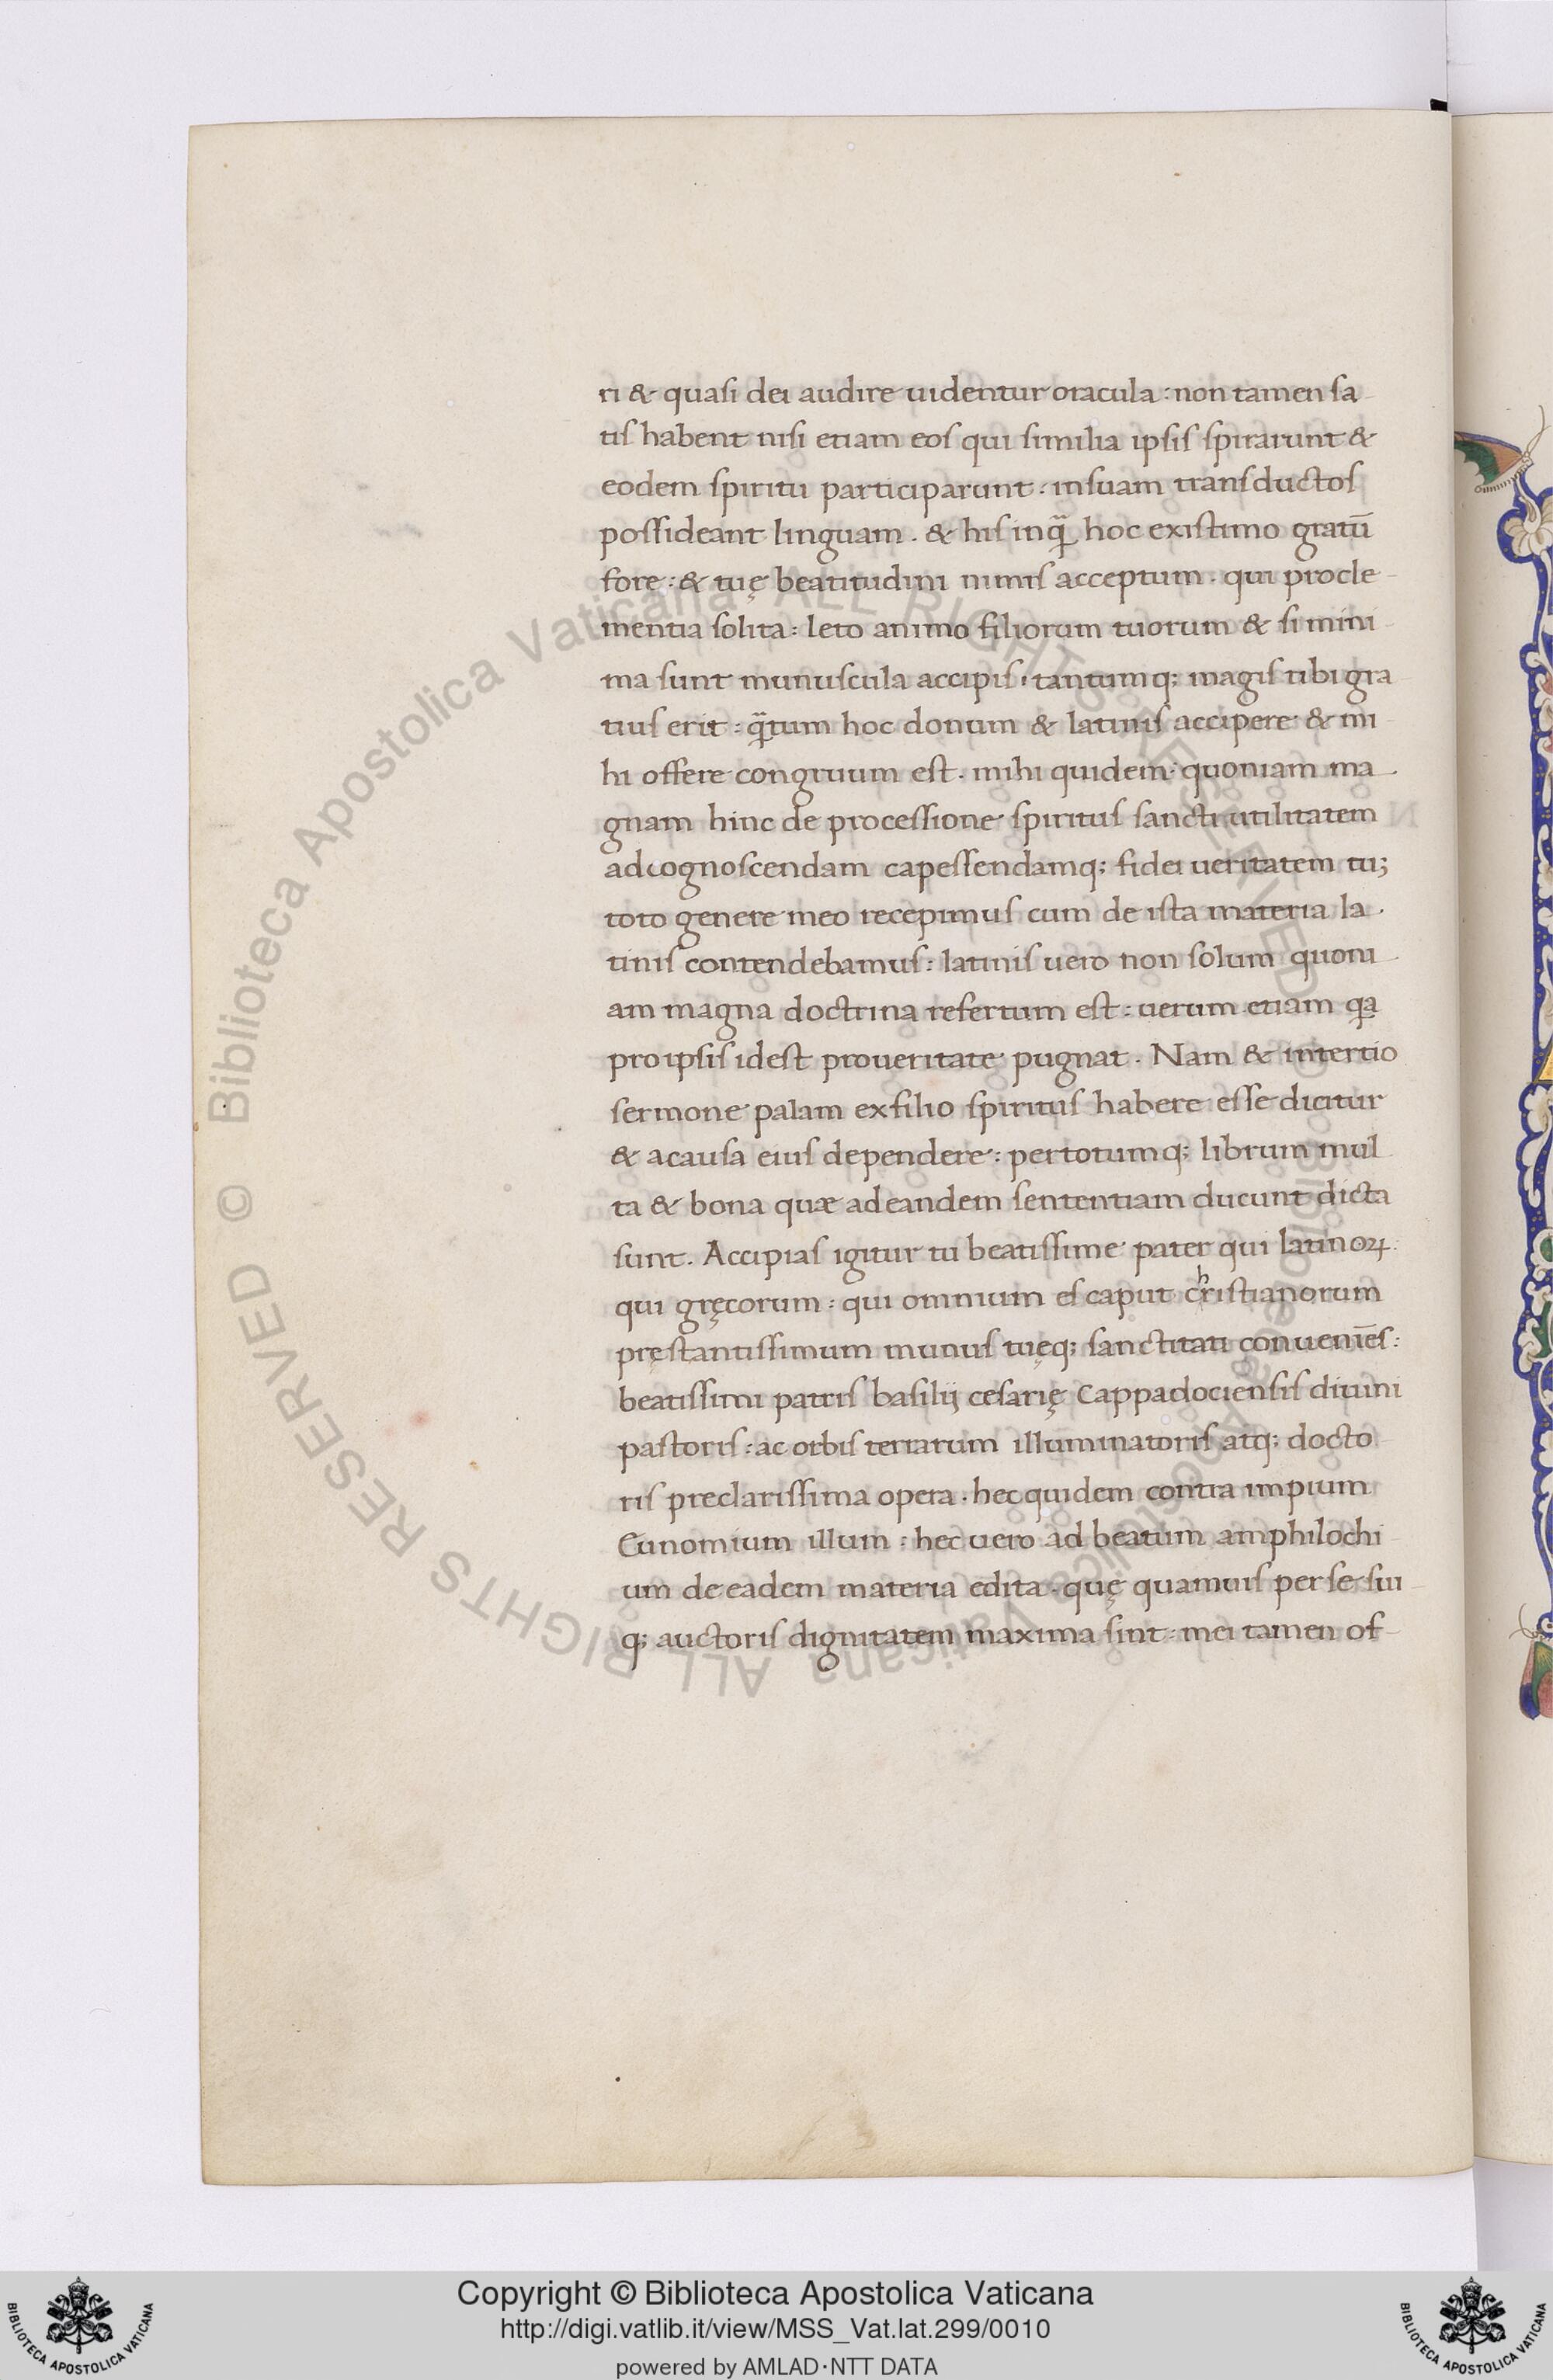 ri & quaſi dei audire uidentur oracula : non tamen ſa-
tiſ habent niſi etiam eoſ qui ſimilia ipſiſ ſpirarunt &
eodem ſpiritu participarunt : inſuam tranſductoſ
poſſideant linguam . & hiſ inq̃ hoc exiſtimo gratū
fore : & tuę beatitudini nimiſ acceptum . qui procle-
mentia ſolita : leto animo filiorum tuorum & ſi mini-
ma ſunt munuſcula accipiſ . tantumq; magiſ tibi gra
tiuſ erit : q̃tum hoc donum & latiniſ accipere & mi-
hi offere congruum eſt . mihi quidem . quoniam ma-
gnam hinc de proceſſione ſpirituſ ſancti utilitatem
adcognoſcendam capeſſendamq; fidei ueritatem tu;
toto genere meo recepimuſ cum de iſta materia la-
tiniſ contendebamuſ : latiniſ uero non ſolum quoni-
am magna doctrina refertum eſt : uerum etiam qa
proipſiſ ideſt proueritate pugnat . Nam & intertio
ſermone palam exfilio ſpirituſ habere eſſe dicitur
& acauſa eiuſ dependere : pertotumq; librum mul
ta & bona quæ adeandem ſententiam ducunt dicta
ſunt . Accipiaſ igitur tu beatiſſime pater qui latinoꝝ
qui gręcorum : qui omnium eſ caput chriſtianorum
pręſtantiſſimum munuſ tuęq; ſanctitati conueniēſ :
beatiſſimi patriſ baſilij ceſarię Cappadocienſiſ diuini
paſtoriſ : ac orbiſ terrarum illuminatoriſ atq; docto
riſ preclariſſima opera . hec quidem contra impium
Eunomium illum : hec uero ad beatum amphilochi-
um de eadem materia edita . quę quamuiſ per ſe ſui-
q; auctoriſ dignitatem maxima ſint : mei tamen of-
Copyright © Biblioteca Apostolica Vaticana
http://digi.vatlib.it/view/MSS_Vat.lat.299/0010
powered by AMLAD·NTT DATA
BIBLIOTECA APOSTOLICA VATICANA
BIBLIOTECA APOSTOLICA VATICANA
© Biblioteca Apostolica Vaticana ALL RIGHTS RESERVED © Biblioteca Apostolica Vaticana ALL RIGHTS RESERVED